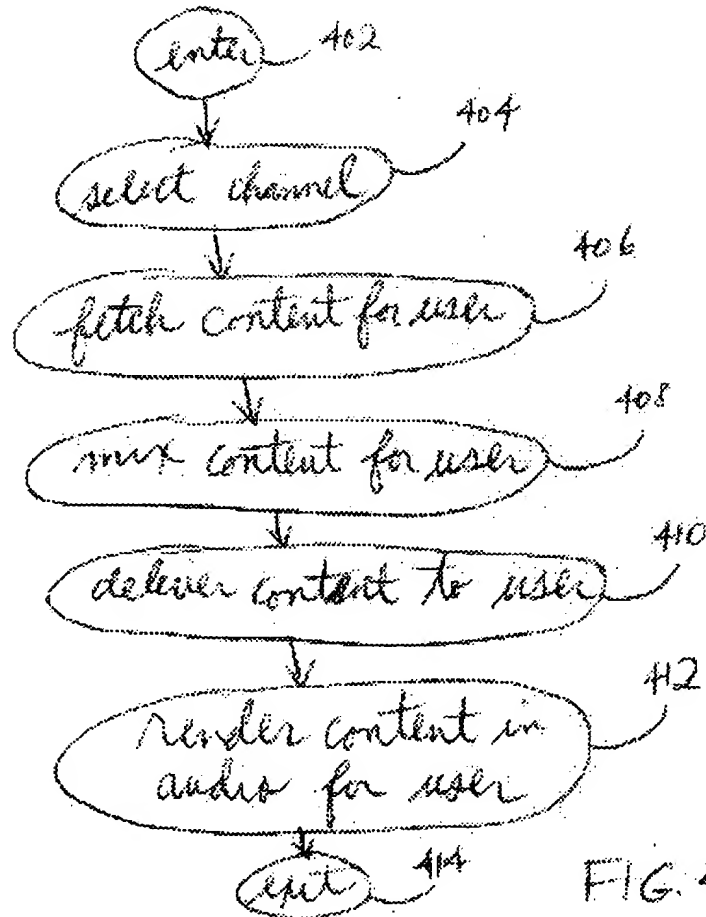 enter 402
404
select channel
406
fetch content for user
408
mix content for user
410
deliver content to user
412
render content in
audio for user
exit 414
FIG.